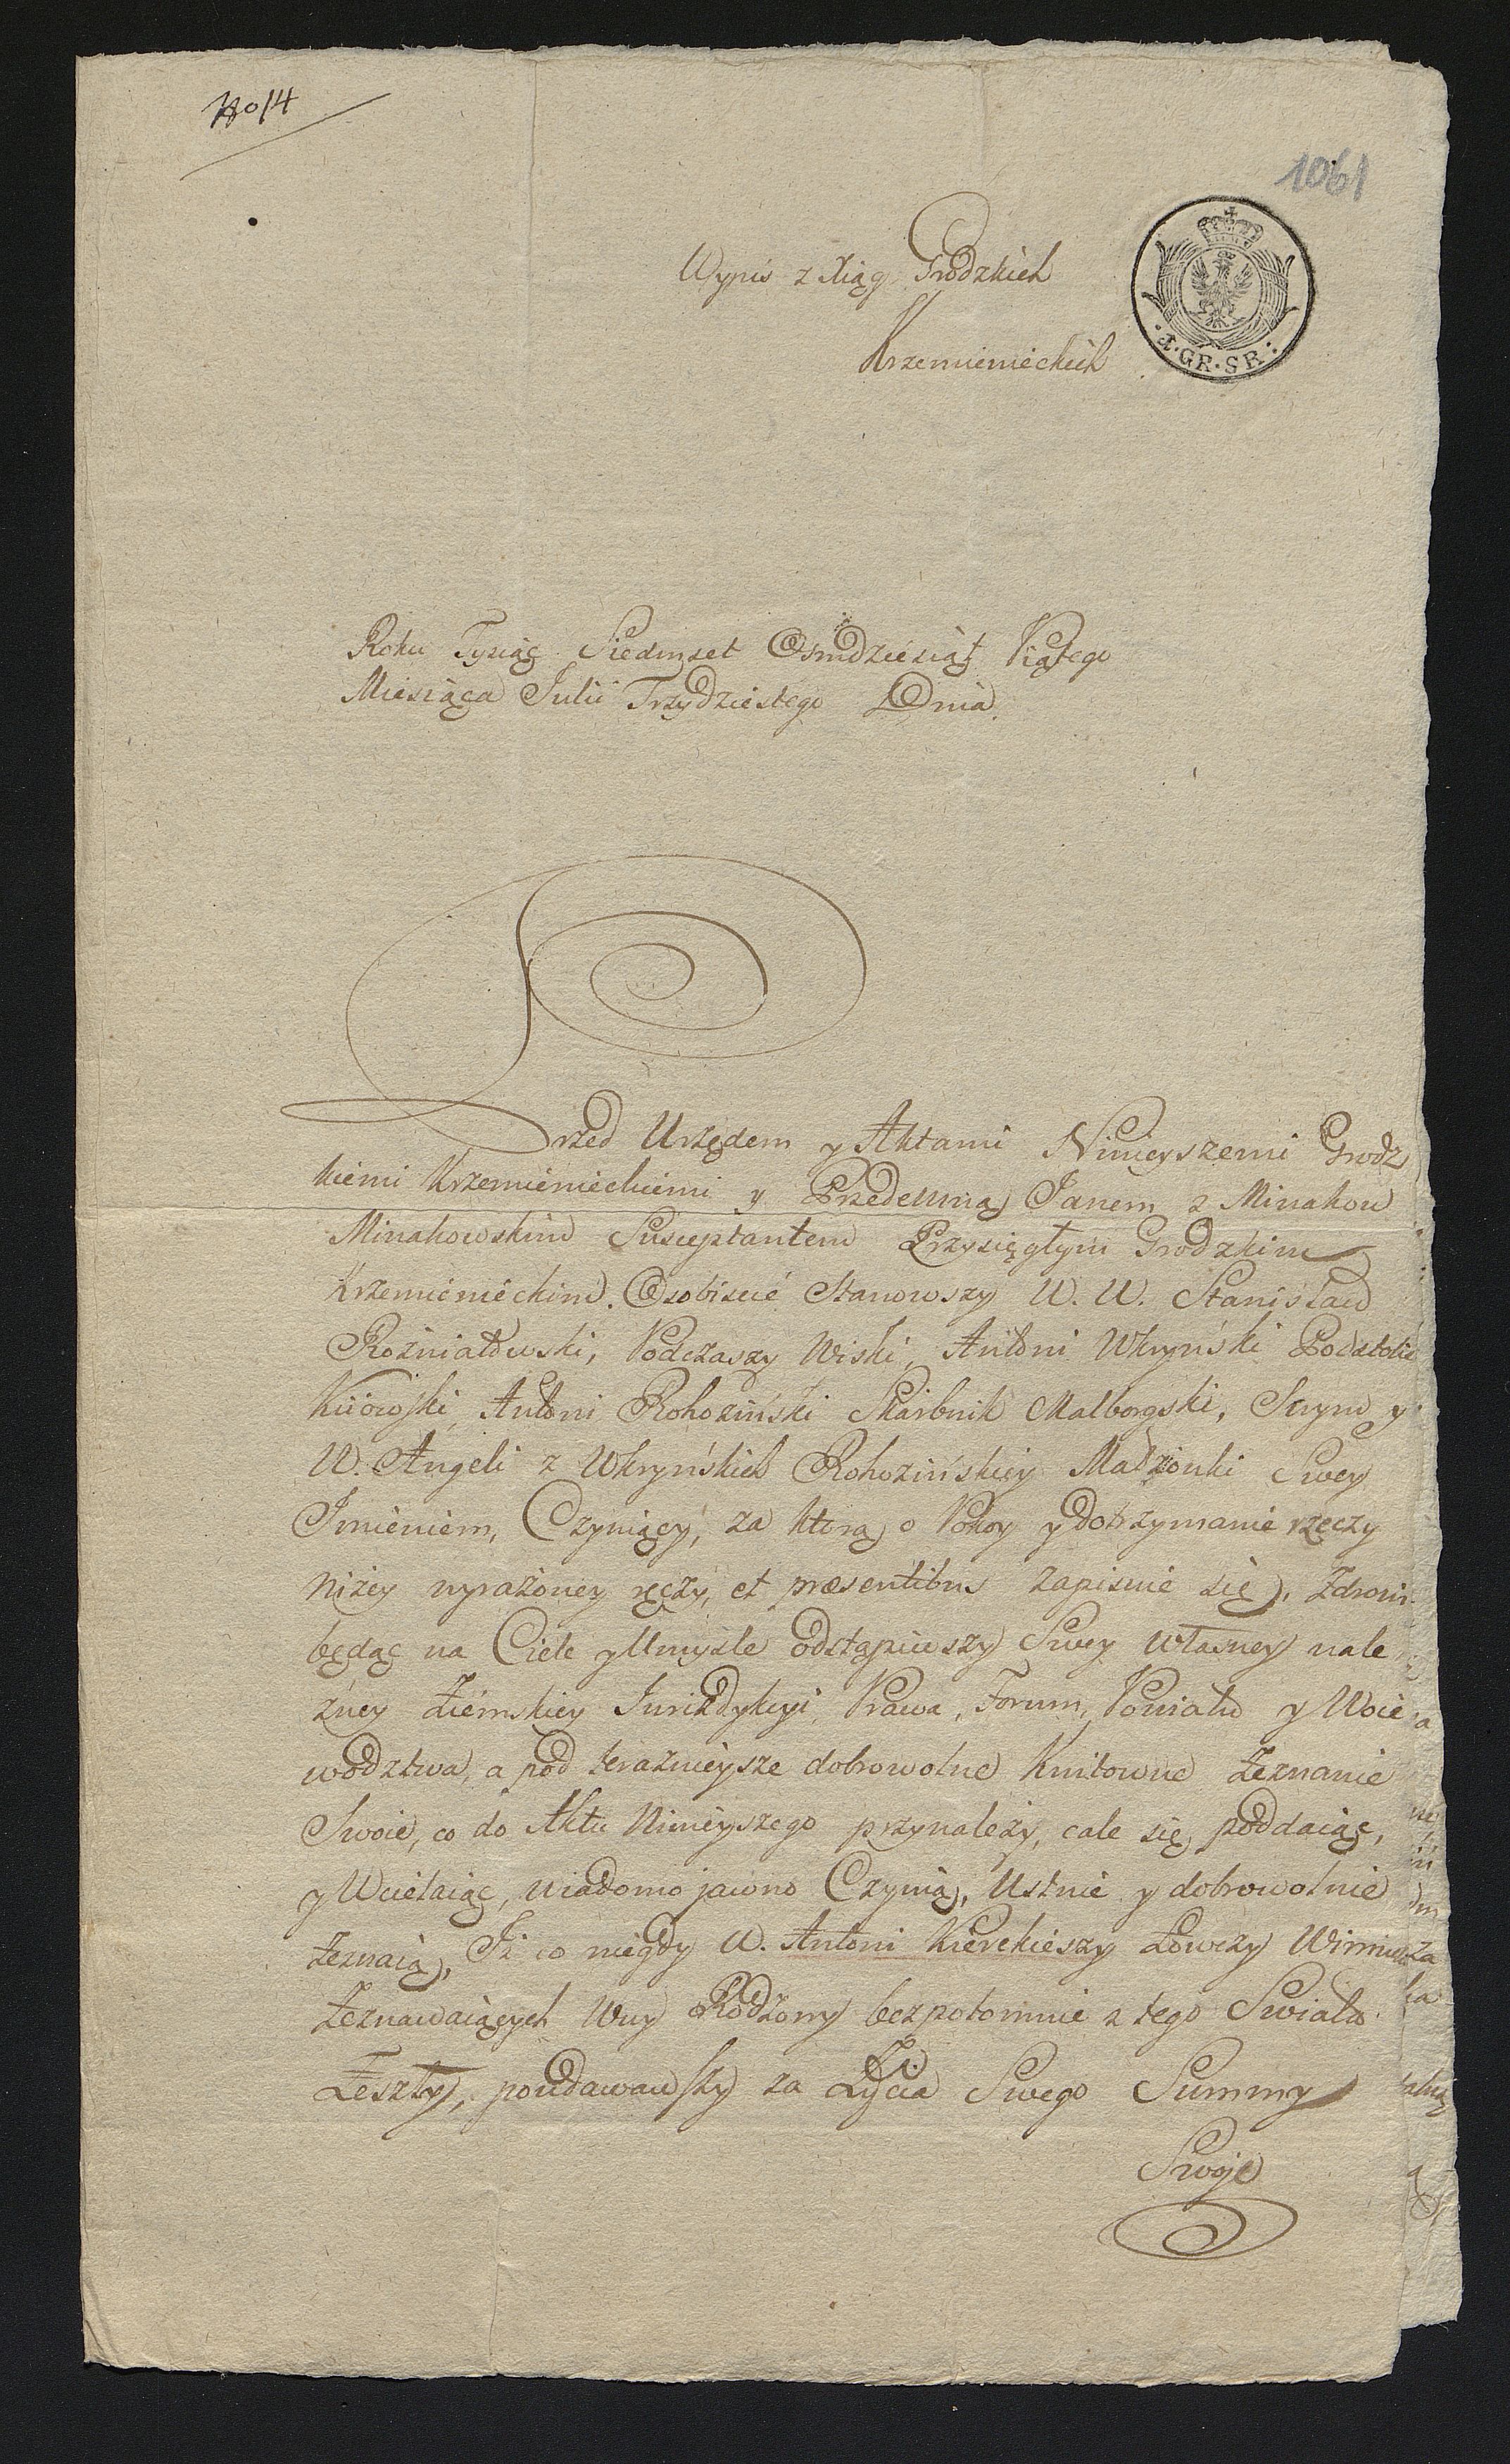 No 14
1061
Wypis z Xiąg Grodzkich
Krzemienieckich
a. GR. SR.
Roku Tysiąc Siedmset Osmdziesiąt Piątego
Miesiąca Julii Trzydziestego Dnia
Przed Urzędem y Aktami Ninieyszemi Grodz
kiemi Krzemienieckiemi y Przedemną Janem z Minakow
Minakowskim Susceptantem Przysięgłym Grodzkim
Krzemienieckim. Osobiscie Stanowszy W. W. Stanisław
Rożniatowski, Podczaszy Wiski, Antoni Ukryński Podstoli
Kiiowski, Antoni Rohoziński Skarbnik Malborgski, Swym y
W. Angeli z Ukryńskich Rohozińskiey Małżonki Swey
Imieniem, Czyniący, za ktorą o Pokoy y dotrzymanie rzeczy
niżey wyrażoney ręczy, et præsentibus zapisuie się, Zdrowi
będąc na Ciele y Umysle odstąpiwszy Swey własney nale
żney Ziemskiey Jurizdykcyi, Prawa, Forum, Powiatu y Woie
wodztwa, a pod teraznieysze dobrowolne Kwitowne Zeznanie
Swoie, co do Aktu Ninieyszego przynależy, cale się poddaiąc,
y Wcielaiąc, wiadomo jawno Czynią, Ustnie y dobrowolnie
Zeznaią, Iż co niegdy W. Antoni Kierekieszy Łowczy
Zeznawaiących Wuy Rodzony bezpotomnie z tego Swiata
Zeszły, powdawawszy za Życia Swego Summy
Swoje